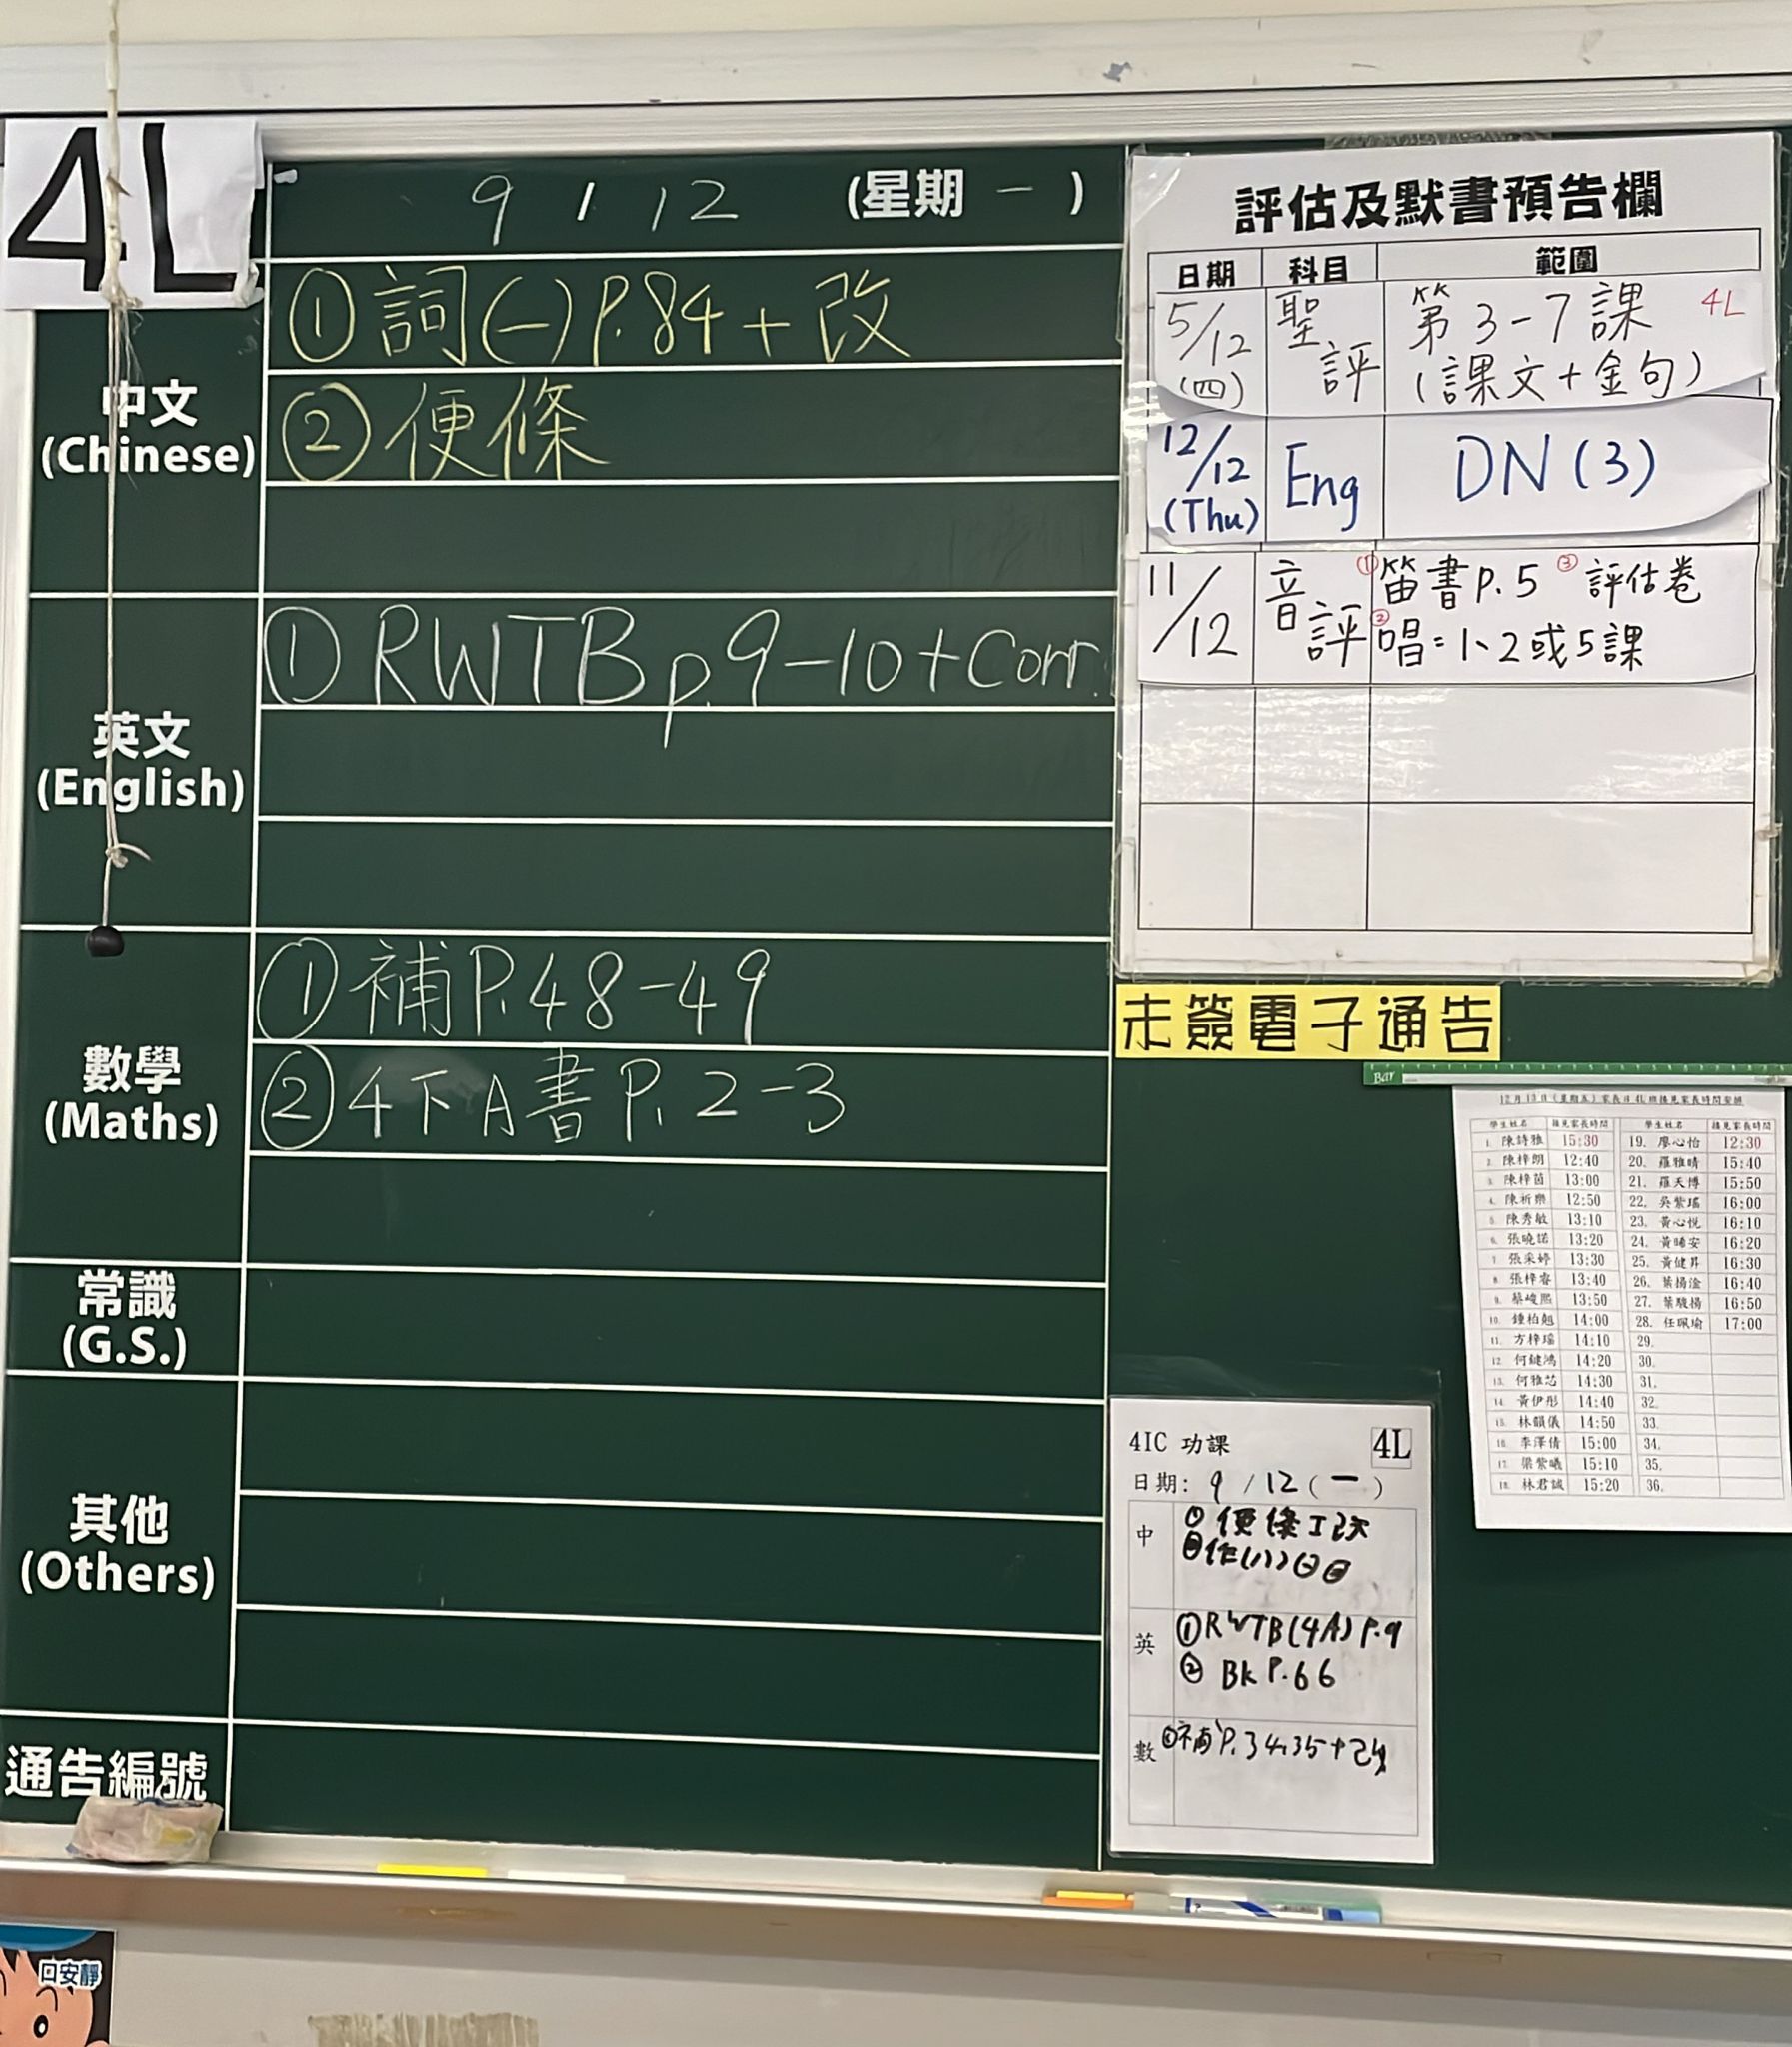 4L
9 / 12 (星期 一 )
中文
(Chinese)
① 詞(一) P.84 + 改
② 便條
英文
(English)
① RWTB p.9-10 + Corr.
數學
(Maths)
① 補 P.48-49
② 4下A書 P.2-3
常識
(G.S.)
其他
(Others)
通告編號
評估及默書預告欄
日期 科目 範圍
5/12 (四) 聖評 第3-7課 (課文+金句) 4L
12/12 (Thu) Eng DN (3)
11/12 音評 ① 笛書 P.5 ③ 評估卷
② 唱=1、2或5課
未簽電子通告
Bar
12月13日(星期五)家長日4L班接見家長時間安排
學生姓名 接見家長時間 學生姓名 接見家長時間
1. 陳詩雅 15:30 19. 廖心怡 12:30
2. 陳梓朗 12:40 20. 羅雅晴 15:40
3. 陳梓茵 13:00 21. 羅天博 15:50
4. 陳祈樂 12:50 22. 吳紫瑤 16:00
5. 陳秀敏 13:10 23. 黃心悅 16:10
6. 張曉諾 13:20 24. 黃晞安 16:20
7. 張采婷 13:30 25. 黃健昇 16:30
8. 張梓睿 13:40 26. 葉揚淦 16:40
9. 蔡峻熙 13:50 27. 葉駿揚 16:50
10. 鍾柏翹 14:00 28. 任珮瑜 17:00
11. 方梓瑤 14:10 29.
12. 何鍵鴻 14:20 30.
13. 何雅芯 14:30 31.
14. 黃伊彤 14:40 32.
15. 林韻儀 14:50 33.
16. 李澤倩 15:00 34.
17. 梁紫曦 15:10 35.
18. 林君誠 15:20 36.
4IC 功課 4L
日期: 9 / 12 ( 一 )
中 ① 便條工改
作(八)
英 ① RWTB(4A) P.9
② Bk P.66
數 ① 補 P.34,35+改
口安靜